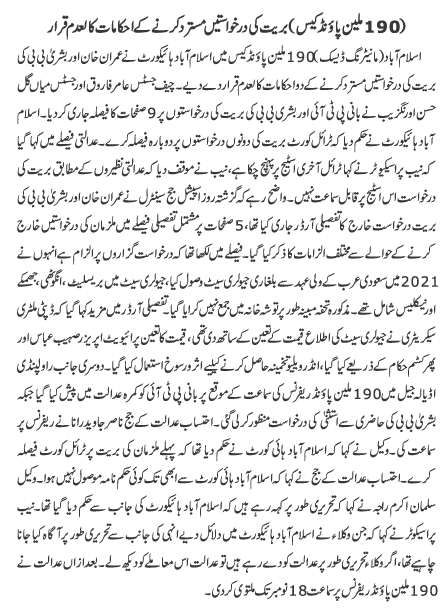 (190 ملین پاؤنڈ کیس) بریت کی درخواستیں مسترد کرنے کے احکامات کالعدم قرار
اسلام آباد (مانیٹرنگ ڈیسک) 190 ملین پاؤنڈ کیس میں اسلام آباد ہائیکورٹ نے عمران خان اور بشریٰ بی بی کی
بریت کی درخواستیں مسترد کرنے کے دو احکامات کالعدم قرار دے دیے۔ چیف جسٹس عامر فاروق اور جسٹس میاں گل
حسن اورنگزیب نے بانی پی ٹی آئی اور بشریٰ بی بی کی بریت کی درخواستوں پر 9 صفحات کا فیصلہ جاری کر دیا۔ اسلام
آباد ہائیکورٹ نے حکم دیا کہ ٹرائل کورٹ بریت کی دونوں درخواستوں پر دوبارہ فیصلہ کرے۔ عدالتی فیصلے میں کہا گیا
کہ نیب پراسیکیوٹر نے کہا ٹرائل آخری اسٹیج پر پہنچ چکا ہے، نیب نے موقف دیا کہ عدالتی نظیروں کے مطابق بریت کی
درخواست اس اسٹیج پر قابل سماعت نہیں۔ واضح رہے کہ گزشتہ روز اسپیشل جج سینٹرل نے عمران خان اور بشریٰ بی بی کی
بریت درخواست خارج کا تفصیلی آرڈر جاری کیا تھا، 5 صفحات پر مشتمل تفصیلی فیصلے میں ملزمان کی درخواستیں خارج
کرنے کے حوالے سے مختلف الزامات کا ذکر کیا گیا۔ فیصلے میں لکھا تھا کہ درخواست گزاروں پر الزام ہے انہوں نے
2021 میں سعودی عرب کے ولی عہد سے بلغاری جیولری سیٹ وصول کیا، جیولری سیٹ میں بریسلیٹ، انگوٹھی، جھمکے
اور نیکلیس شامل تھے۔ مذکورہ تحفہ مبینہ طور پر توشہ خانہ میں جمع نہیں کرایا گیا۔ تفصیلی آرڈر میں مزید کہا گیا کہ ڈپٹی ملٹری
سیکریٹری نے جیولری سیٹ کی اطلاع قیمت کے تعین کے ساتھ دی تھی، قیمت کا تعین پرائیویٹ اپریزر صہیب عباس اور
پھر کسٹم حکام کے ذریعے کیا گیا، انڈر ویلیو تخمینہ حاصل کرنے کیلیے اثر و رسوخ استعمال کیا گیا۔ دوسری جانب راولپنڈی
اڈیالہ جیل میں 190 ملین پاؤنڈ ریفرنس کی سماعت کے موقع پر بانی پی ٹی آئی کو کمرہ عدالت میں پیش کیا گیا جبکہ
بشریٰ بی بی کی حاضری سے استثنیٰ کی درخواست منظور کر لی گئی۔ احتساب عدالت کے جج ناصر جاوید رانا نے ریفرنس پر
سماعت کی۔ وکیل نے کہا کہ اسلام آباد ہائی کورٹ نے حکم دیا تھا کہ پہلے ملزمان کی بریت پر ٹرائل کورٹ فیصلہ
کرے۔ احتساب عدالت کے جج نے کہا کہ اسلام آباد ہائی کورٹ سے ابھی تک کوئی حکم نامہ موصول نہیں ہوا۔ وکیل
سلمان اکرم راجہ نے کہا کہ تحریری طور پر کہہ رہے ہیں کہ اسلام آباد ہائیکورٹ کی جانب سے حکم دیا گیا تھا۔ نیب
پراسیکیوٹر نے کہا کہ جن وکلاء نے اسلام آباد ہائیکورٹ میں دلائل دیے انہی کی جانب سے تحریری طور پر آگاہ کیا جانا
چاہیے تھا، اگر وکلاء تحریری طور پر عدالت کو دے رہے ہیں تو عدالت اس معاملے کو دیکھ لے۔ بعد ازاں عدالت نے
190 ملین پاؤنڈ ریفرنس پر سماعت 18 نومبر تک ملتوی کر دی۔